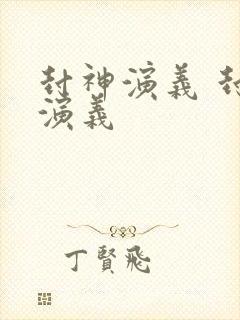 封神演義
演義
丁賢飛